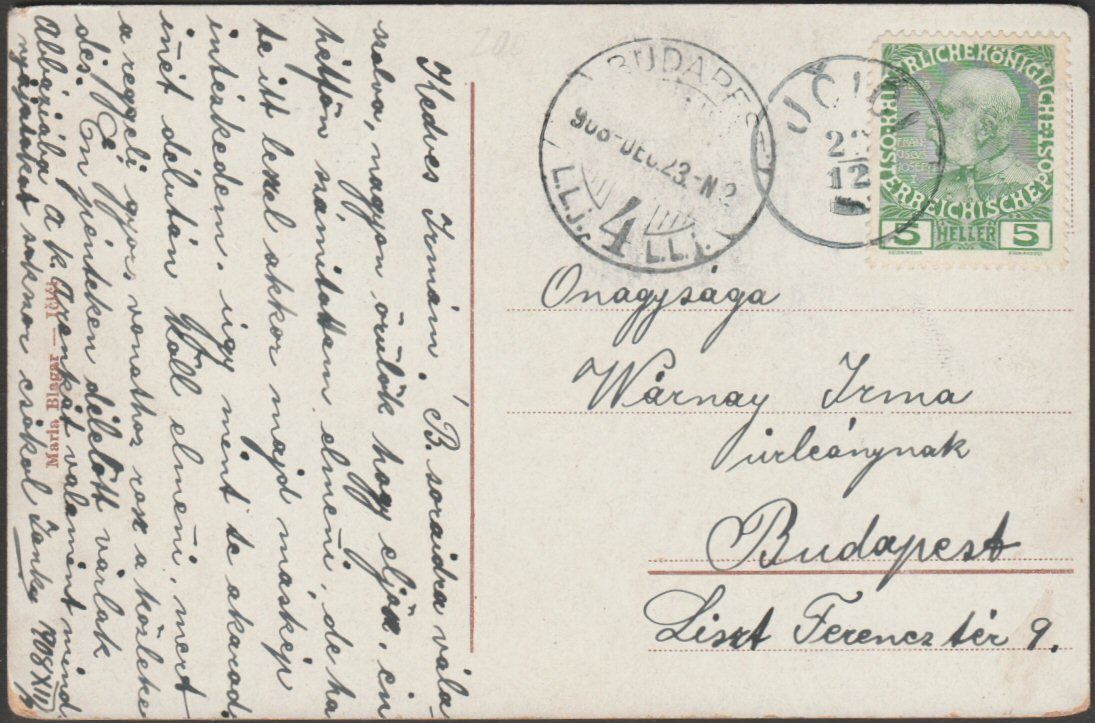 Kedves Irmám! B. soraidra vála-
szolva, nagyon örülök hogy eljösz. én
hétfőn számitottam elmeni, de ha
te itt leszel akkor majd máskép
intézkedem. úgy mént te akarod.
inét délután köll elmeni, mert
a reggeli gyors vonathoz rosz a közleke
dés. Én pénteken délelőtt várlak
Abbáziába a k. Izonkát valamént mind
nyájatokat sokszor csókol Janka 908 XII
Maria Blagar — Ičići
BUDAPEST
908-DEC.23.-N2
L.L.J. 4 L.L.J.
IČIĆI
12
KAISERLICHEKÖNIGLICHE
POST
ÖSTERREICHISCHE
5 HELLER 5
Onagysága
Wárnay Irma
úrleánynak
Budapest
Liszt Ferencz tér 9.